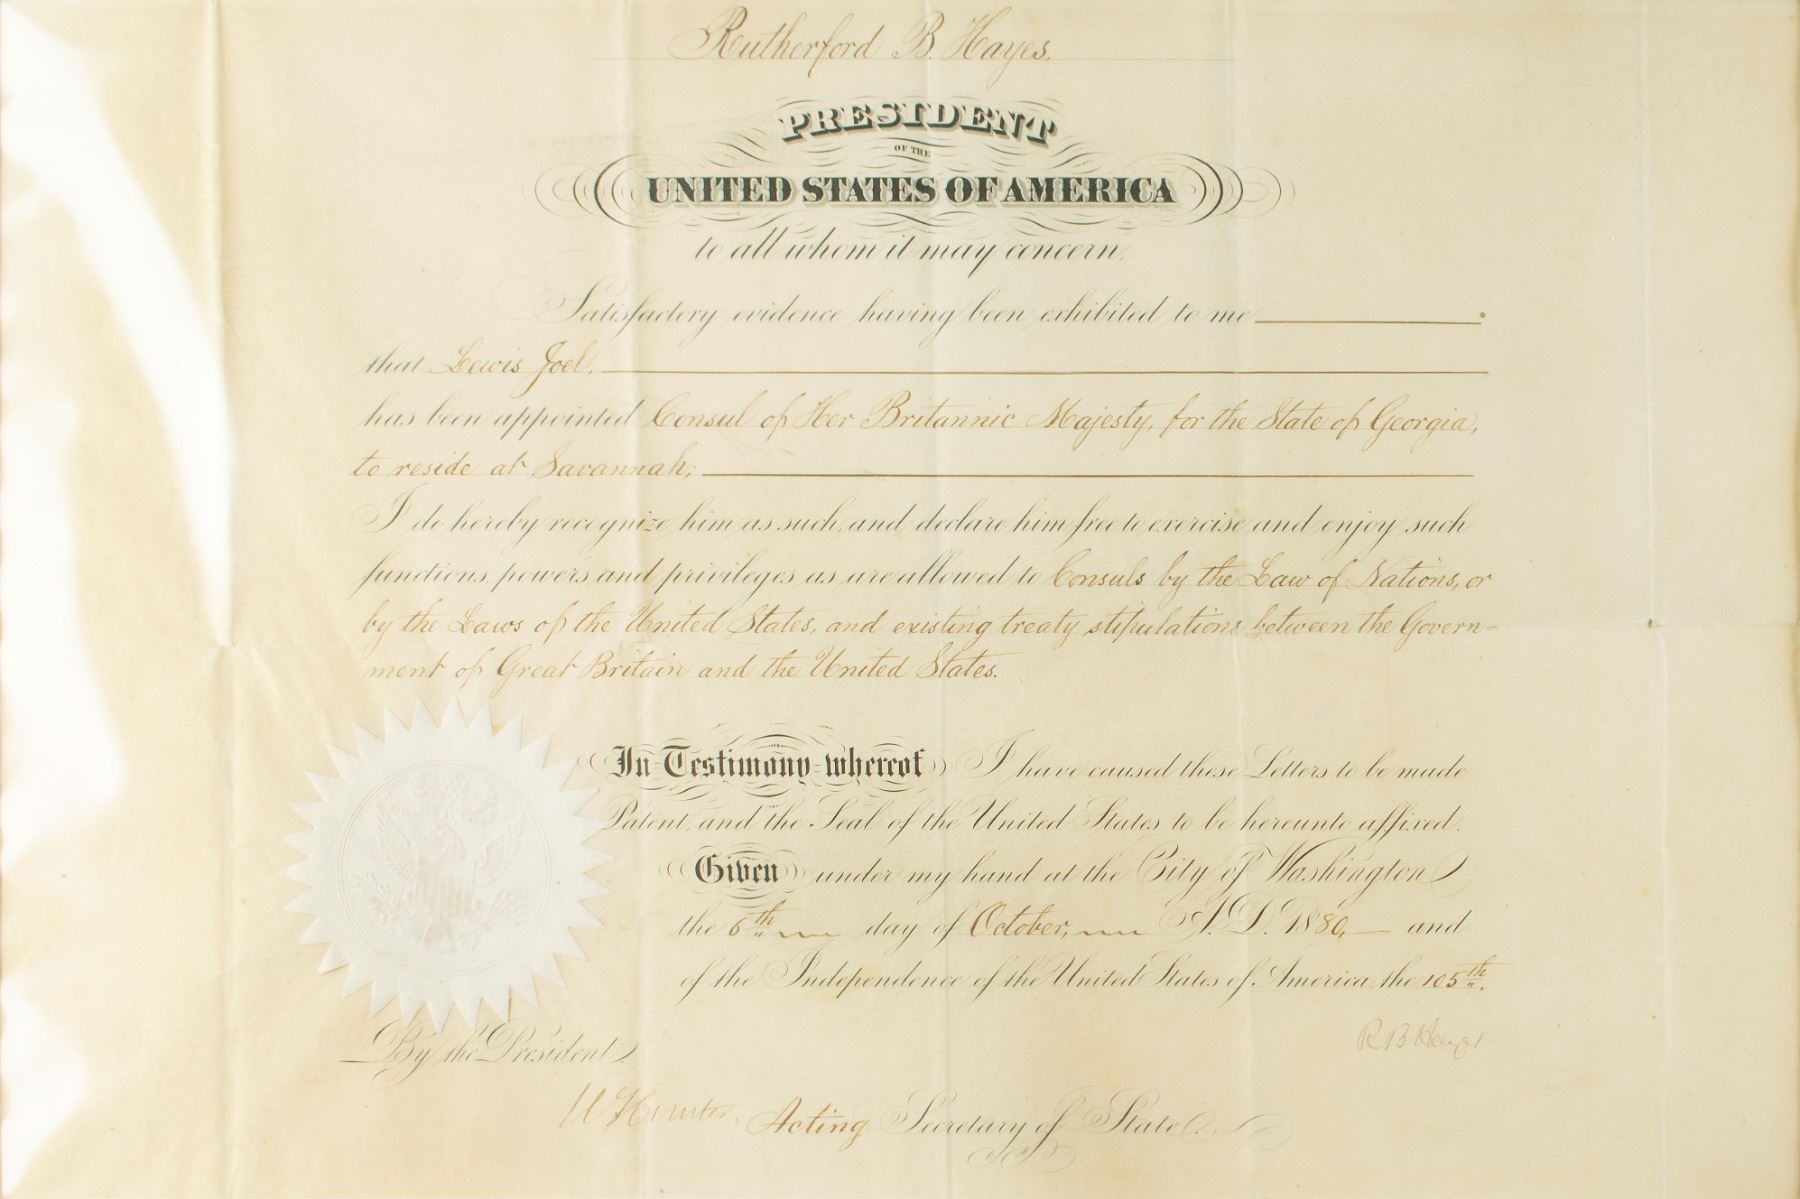 Rutherford B. Hayes.
PRESIDENT
OF THE
UNITED STATES OF AMERICA
to all whom it may concern,
Satisfactory evidence having been exhibited to me
that Lewis Joel,
has been appointed Consul of Her Britannic Majesty, for the State of Georgia,
to reside at Savannah;
I do hereby recognize him as such, and declare him free to exercise and enjoy such
functions, powers and privileges as are allowed to Consuls by the Law of Nations, or
by the Laws of the United States, and existing treaty stipulations between the Govern=
ment of Great Britain and the United States.
In Testimony whereof I have caused these Letters to be made
Patent, and the Seal of the United States to be hereunto affixed.
Given under my hand at the City of Washington
the 6th day of October, A.D. 1880, and
of the Independence of the United States of America, the 105th.
R B Hayes
By the President
W Hunter, Acting Secretary of State.